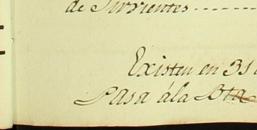 de Sirvientes
Existen en 31
Pasa á la Bta